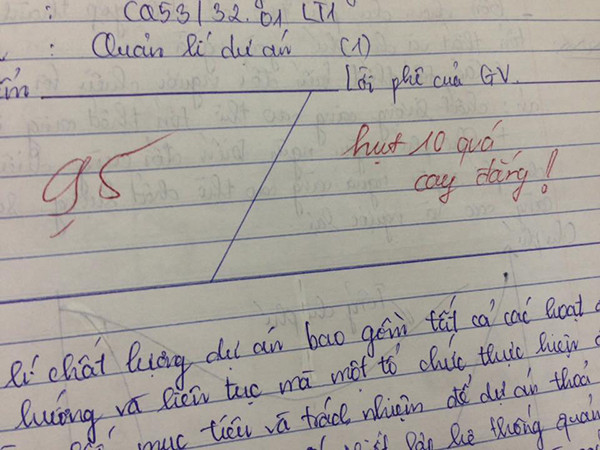 : CQ53/32.01 LT1
: Quản lí dự án (1)
Lời phê của GV.
9,5
hụt 10 quá
cay đắng!
lí chất lượng dự án bao gồm tất cả các hoạt
hướng và liên tục mà một tổ chức thực hiện
mục tiêu và trách nhiệm để dự án thoả
hệ thống quản